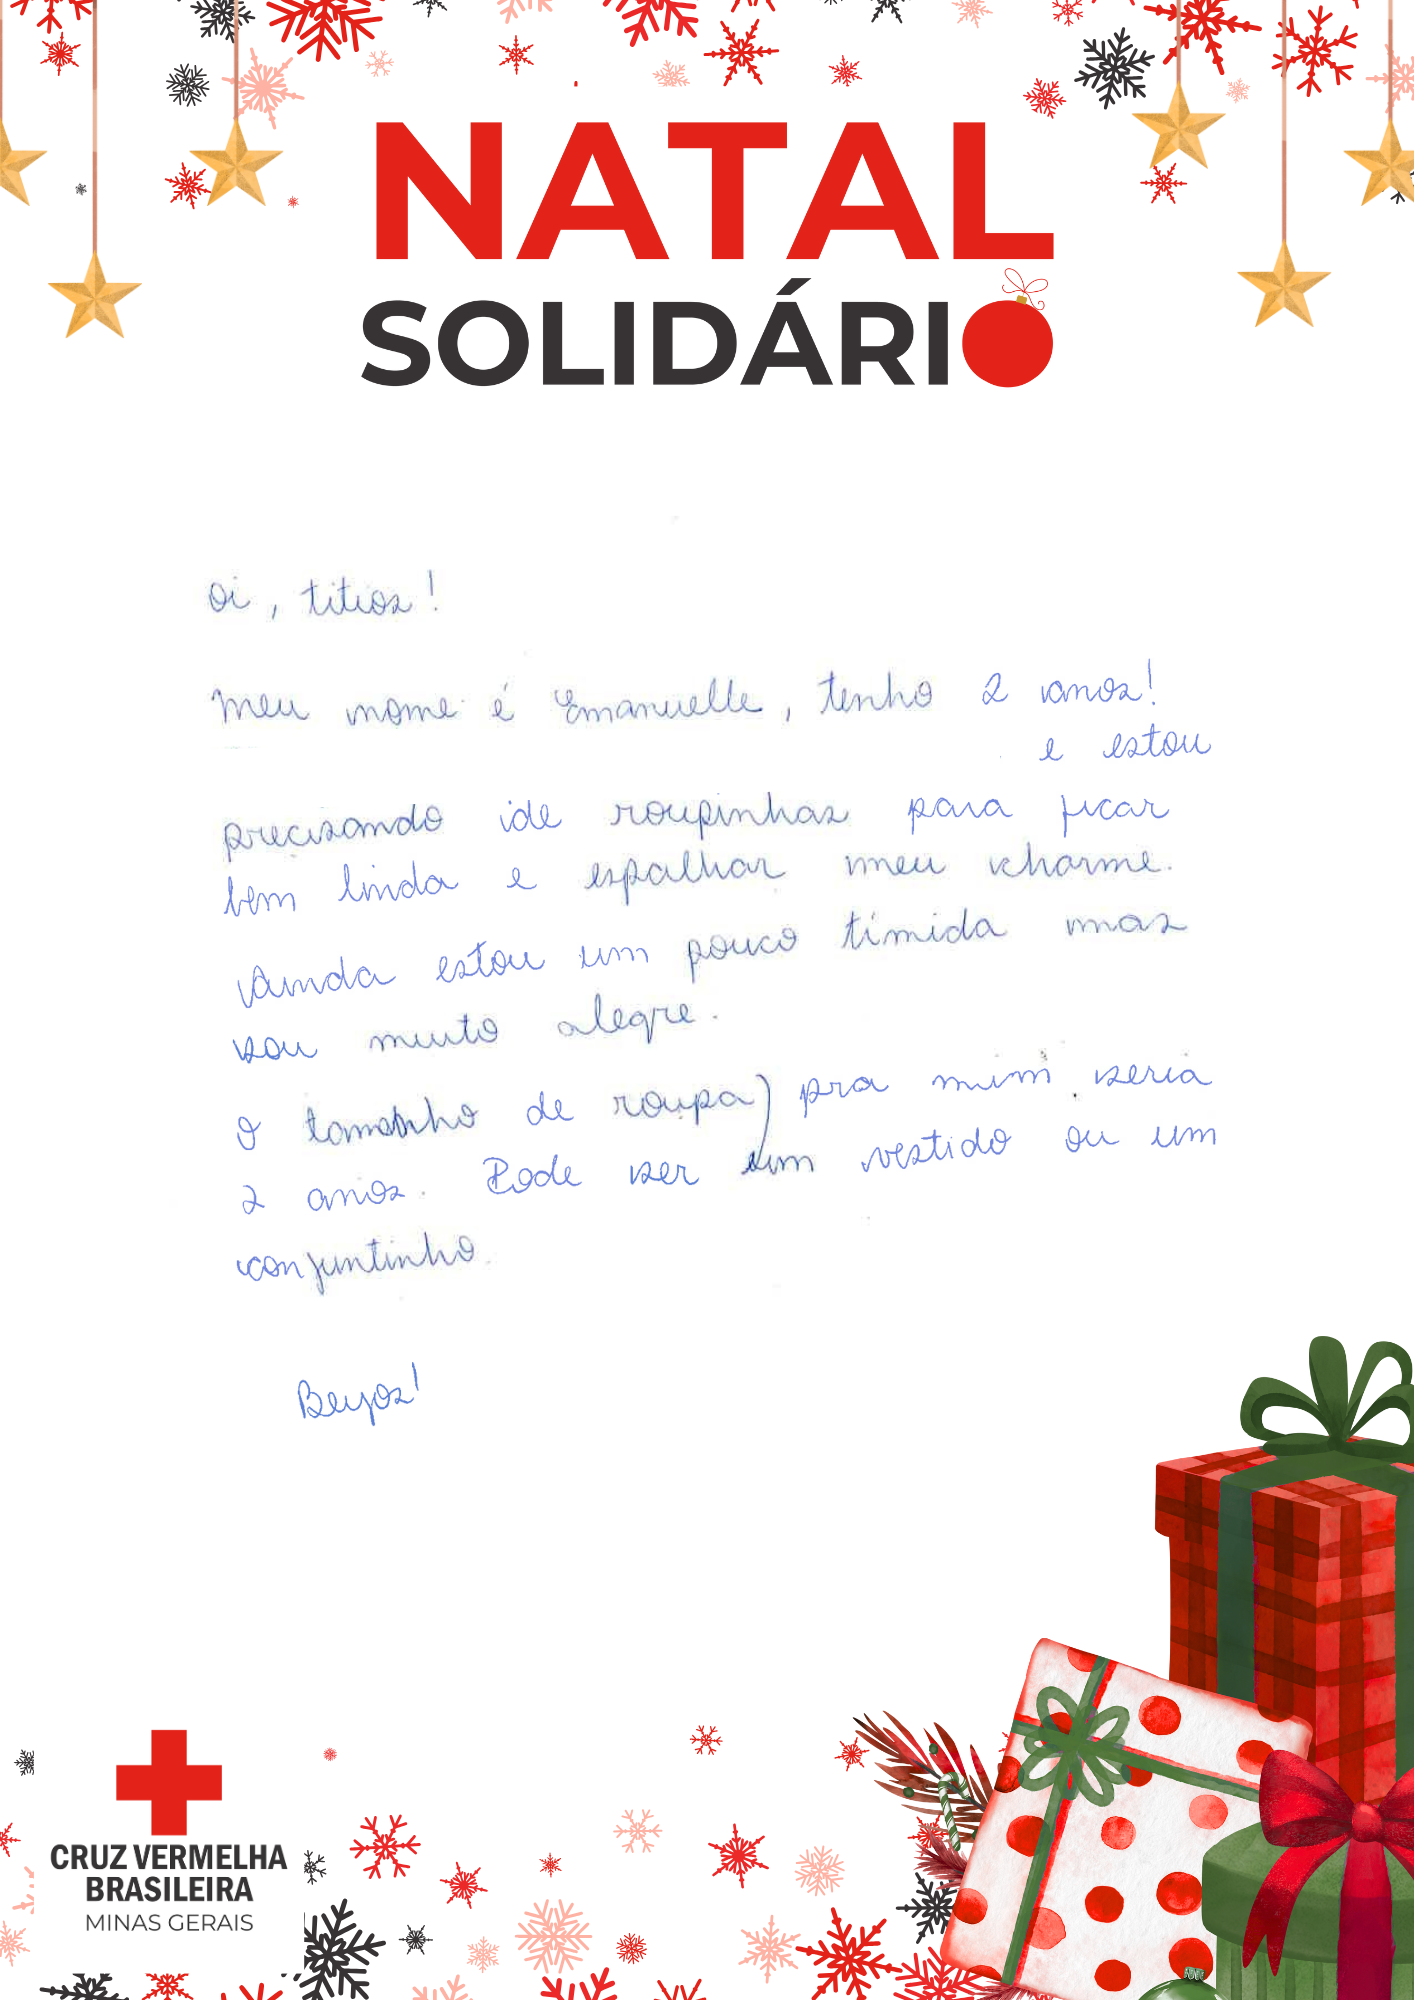 NATAL
SOLIDÁRIO
Oi, titios!
Meu nome é Emanuelle, tenho 2 anos!
e estou
precisando de roupinhas para ficar
bem linda e espalhar meu charme.
Ainda estou um pouco tímida mas
sou muito alegre.
O tamanho de roupa pra mim seria
2 anos. Pode ser um vestido ou um
conjuntinho.
Beijos!
CRUZ VERMELHA
BRASILEIRA
MINAS GERAIS